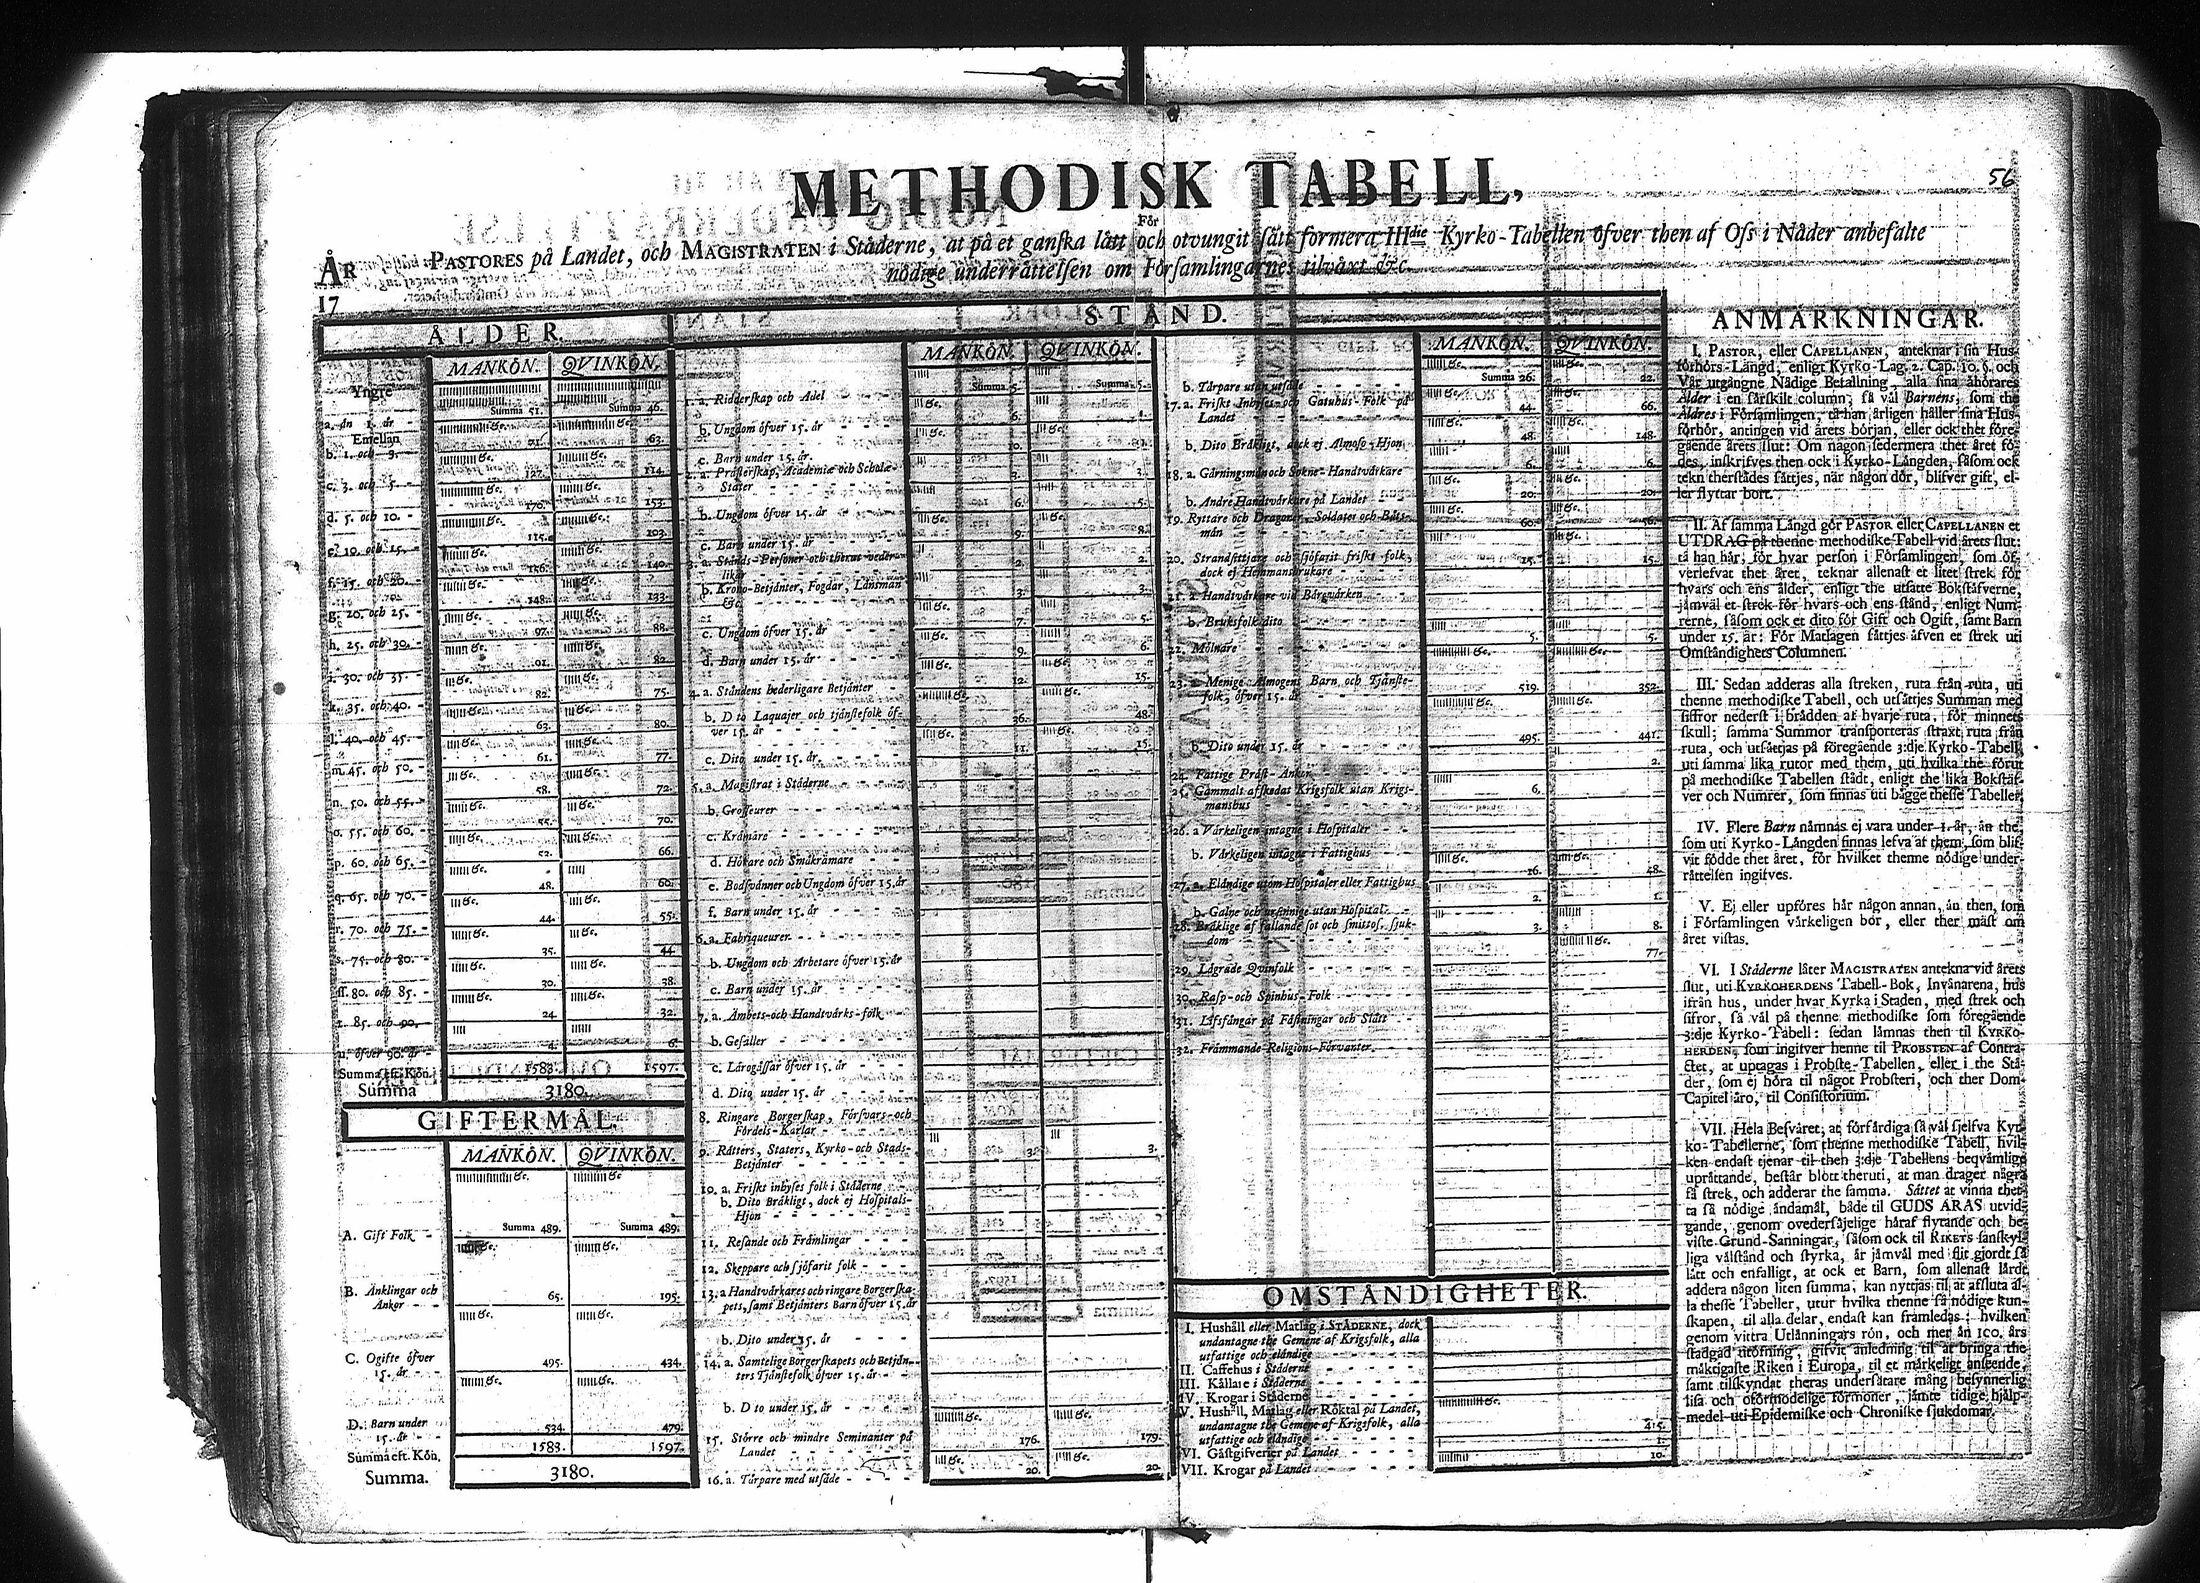 56
METHODISK TABELL,
För
PASTORES på Landet, och MAGISTRATEN i Städerne, at på et ganſka lätt och otvungit ſätt formera IIIdie Kyrko-Tabellen öfver then af Oſs i Nåder anbefalte
nödige underrättelſen om Förſamlingarnes tilväxt &c.
ÅR
17
ÅLDER.
MANKÖN. QVINKÖN.
Yngre
Summa 51. Summa 46.
a. än 1. år
Emellan 63.
b. 1. och 3.
127. 114.
c. 3. och 5.
170. 153.
d. 5. och 10.
115. 103.
e. 10. och 15.
156. 140.
f. 15. och 20.
148. 133.
g. 20. och 25.
97. 88.
h. 25. och 30.
91. 82.
i. 30. och 35.
82. 75.
k. 35. och 40.
63. 80.
l. 40. och 45.
61. 77.
m. 45. och 50.
58. 72.
n. 50. och 55.
55. 70.
o. 55. och 60.
52. 66.
p. 60. och 65.
48. 60.
q. 65. och 70.
44. 55.
r. 70. och 75.
35. 44.
s. 75. och 80.
30. 38.
ſſ. 80. och 85.
24. 32.
t. 85. och 90.
4. 6.
u. öfver 90. år
Summa eft. Kön. 1583. 1597.
Summa 3180.
GIFTERMÅL.
MANKÖN. QVINKÖN.
Summa 489. Summa 489.
A. Gift Folk
B. Änklingar och 65. 195.
Änkor
C. Ogifte öfver 495. 434.
15. år
D. Barn under 534. 479.
15. år
Summa eft. Kön. 1583. 1597.
Summa. 3180.
STÅND.
MANKÖN. QVINKÖN.
Summa 5. Summa 5.
1. a. Ridderſkap och Adel
6.
b. Ungdom öfver 15. år
10.
c. Barn under 15. år.
2. a. Präſterſkap, Academiæ och Scholæ-
Stater
6. 5.
b. Ungdom öfver 15. år
9. 8.
c. Barn under 15. år
3. a. Stånds-Perſoner och theras veder-
likar 2. 2.
b. Krono-Betjänter, Fogdar, Länsmän
&c. 3. 3.
7. 5.
c. Ungdom öfver 15. år
9. 6.
d. Barn under 15. år
12. 15.
4. a. Ståndens hederligare Betjänter
b. Dito Laquajer och tjänſtefolk öf- 36. 48.
ver 15. år
11. 15.
c. Dito under 15. år.
5. a. Magiſtrat i Städerne
b. Groſſeurer
c. Krämare
d. Hökare och Småkrämare
e. Bodſvänner och Ungdom öfver 15. år
f. Barn under 15. år
6. a. Fabriqueurer
b. Ungdom och Arbetare öfver 15. år
c. Barn under 15. år
7. a. Ämbets-och Handtvärks-folk
b. Geſäller
c. Lärogåſſar öfver 15. år
d. Dito under 15. år
8. Ringare Borgerſkap, Förſvars-och
Fördels-Karlar
9. Rätters, Staters, Kyrko-och Stads- 3. 3.
Betjänter
10. a. Friſkt inhyſes folk i Städerne
b. Dito Bräkligt, dock ej Hoſpitals-
Hjon
11. Reſande och Främlingar
12. Skeppare och ſjöfarit folk
13. a Handtvärkares och ringare Borgerſka-
pets, ſamt Betjänters Barn öfver 15. år
b. Dito under 15. år
14. a. Samtelige Borgerſkapets och Betjän-
ters Tjänſtefolk öfver 15. år
b. Dito under 15. år
15. Större och mindre Seminanter på 176. 179.
Landet
16. a. Tårpare med utſäde 20. 20.
MANKÖN. QVINKÖN.
b. Tårpare utan utſäde Summa 26. 22.
17. a. Friſkt Inhyſes-och Gatuhus-Folk på 44. 66.
Landet
b. Dito Bräkligt, dock ej Almoſo-Hjon 48. 148.
18. a. Gärningsmän och Sokne-Handtvärkare 6. 6.
b. Andre Handtvärkare på Landet 20. 20.
19. Ryttare och Dragoner, Soldater och Båts- 60. 56.
män
20. Strandſittjare och ſjöfarit friſkt folk, 15. 15.
dock ej Hemmansbrukare
21. a Handtvärkare vid Bärgvärken
b. Bruksfolk dito
5. 5.
22. Mölnare
23. a. Menige Almogens Barn och Tjänſte- 519. 352.
folk, öfver 15. år
b. Dito under 15. år 495. 441.
2.
24. Fattige Präſt-Änkor
25. Gammalt afſkedat Krigsfolk utan Krigs- 6.
manshus
26. a Värkeligen intagne i Hoſpitaler
b. Värkeligen intagne i Fattighus
16. 48.
27. a. Eländige utom Hoſpitaler eller Fattighus
2. 1.
b. Galne och urſinnige utan Hoſpital
28. Bräklige af fallande ſot och ſmittoſ. ſjuk- 3. 8.
dom
77.
29. Lägrade Qvinfolk
30. Raſp-och Spinhus-Folk
31. Lifsfångar på Fäſtningar och Slått
32. Främmande Religions-Förvanter
OMSTÄNDIGHETER.
I. Hushåll eller Matlag i STÄDERNE, dock
undantagne the Gemene af Krigsfolk, alla
utfattige och eländige
II. Caffehus i Städerne
III. Källare i Städerne
IV. Krogar i Städerne
V. Hushåll, Matlag eller Röktal på Landet,
undantagne the Gemene af Krigsfolk, alla 415.
utfattige och eländige
VI. Gäſtgifverier på Landet 1.
VII. Krogar på Landet 10.
ANMÄRKNINGAR.
I. PASTOR, eller CAPELLANEN, anteknar i ſin Hus-
förhörs-Längd, enligt Kyrko-Lag. 2. Cap. 10. §. och
Vår utgångne Nådige Befallning, alla ſina åhörares
Ålder i en ſärſkilt column, ſå väl Barnens, ſom the
Äldres i Förſamlingen, tå han årligen håller ſina Hus-
förhör, antingen vid årets början, eller ock thet före-
gående årets ſlut: Om någon ſedermera thet året fö-
des, inſkrifves then ock i Kyrko-Längden, ſåſom ock
tekn therſtädes ſättjes, när någon dör, blifver gift, el-
ler flyttar bort.
II. Af ſamma Längd gör PASTOR eller CAPELLANEN et
UTDRAG på thenne methodiſke Tabell vid årets ſlut:
tå han här, för hvar perſon i Förſamlingen, ſom öf-
verlefvat thet året, teknar allenaſt et litet ſtrek för
hvars och ens ålder, enligt the utſatte Bokſtäfverne,
jämväl et ſtrek för hvars och ens ſtånd, enligt Num-
rerne, ſåſom ock et dito för Gift och Ogift, ſamt Barn
under 15. år: För Matlagen ſättjes äfven et ſtrek uti
Omſtändighets Columnen.
III. Sedan adderas alla ſtreken, ruta från ruta, uti
thenne methodiſke Tabell, och utſättjes Summan med
ſiffror nederſt i brädden af hvarje ruta, för minnets
ſkull; ſamma Summor tranſporteras ſtraxt ruta från
ruta, och utſättjas på föregående 3:dje Kyrko-Tabell,
uti ſamma lika rutor med them, uti hvilka the förut
på methodiſke Tabellen ſtådt, enligt the lika Bokſtäf-
ver och Numrer, ſom finnas uti bägge theſſe Tabeller.
IV. Flere Barn nämnas ej vara under 1. år, än the,
ſom uti Kyrko-Längden finnas lefva af them, ſom blif-
vit födde thet året, för hvilket thenne nödige under-
rättelſen ingifves.
V. Ej eller upföres här någon annan, än then, ſom
i Förſamlingen värkeligen bor, eller ther mäſt om
året viſtas.
VI. I Städerne låter MAGISTRATEN antekna vid årets
ſlut, uti KYRKOHERDENS Tabell-Bok, Invånarena, hus
ifrån hus, under hvar Kyrka i Staden, med ſtrek och
ſifror, ſå väl på thenne methodiſke ſom föregående
3:dje Kyrko-Tabell: ſedan lämnas then til KYRKO-
HERDEN, ſom ingifver henne til PROBSTEN af Contra-
ctet, at uptagas i Probſte-Tabellen, eller i the Stä-
der, ſom ej höra til något Probſteri, och ther Dom-
Capitel äro, til Conſiſtorium.
VII. Hela Beſväret, at förfärdiga ſå väl ſjelfva Kyr-
ko-Tabellerne, ſom thenne methodiſke Tabell, hvil-
ken endaſt tjenar til then 3:dje Tabellens beqvämlige
uprättande, beſtår blott theruti, at man drager några
få ſtrek, och adderar the ſamma. Sättet at vinna thet-
ta få nödige ändamål, både til GUDS ÄRAS utvid-
gande, genom ovederſäjelige häraf flytande och be-
viſte Grund-Sanningar, ſåſom ock til RIKETS ſanſkyl-
liga välſtånd och ſtyrka, är jämväl med flit gjordt ſå
lätt och enfalligt, at ock et Barn, ſom allenaſt lärdt
addera någon liten ſumma, kan nyttjas til at afſluta al-
la theſſe Tabeller, utur hvilka thenne ſå nödige kun-
ſkapen, til alla delar, endaſt kan framledas: hvilken
genom vittra Utlänningars rön, och mer än 100. års
ſtadgad utöfning, gifvit anledning til at bringa the
mäktigaſte Riken i Europa, til et märkeligt anſeende,
ſamt tilſkyndat theras underſåtare mång beſynnerlig
liſa och oförmodelige förmoner, jämte tidige hjälp-
medel uti Epidemiſke och Chroniſke ſjukdomar.